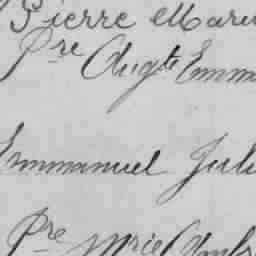 Pierre Marie
Pre Augte Emma
Emmanuel Jul
Pre Mrie Ambr